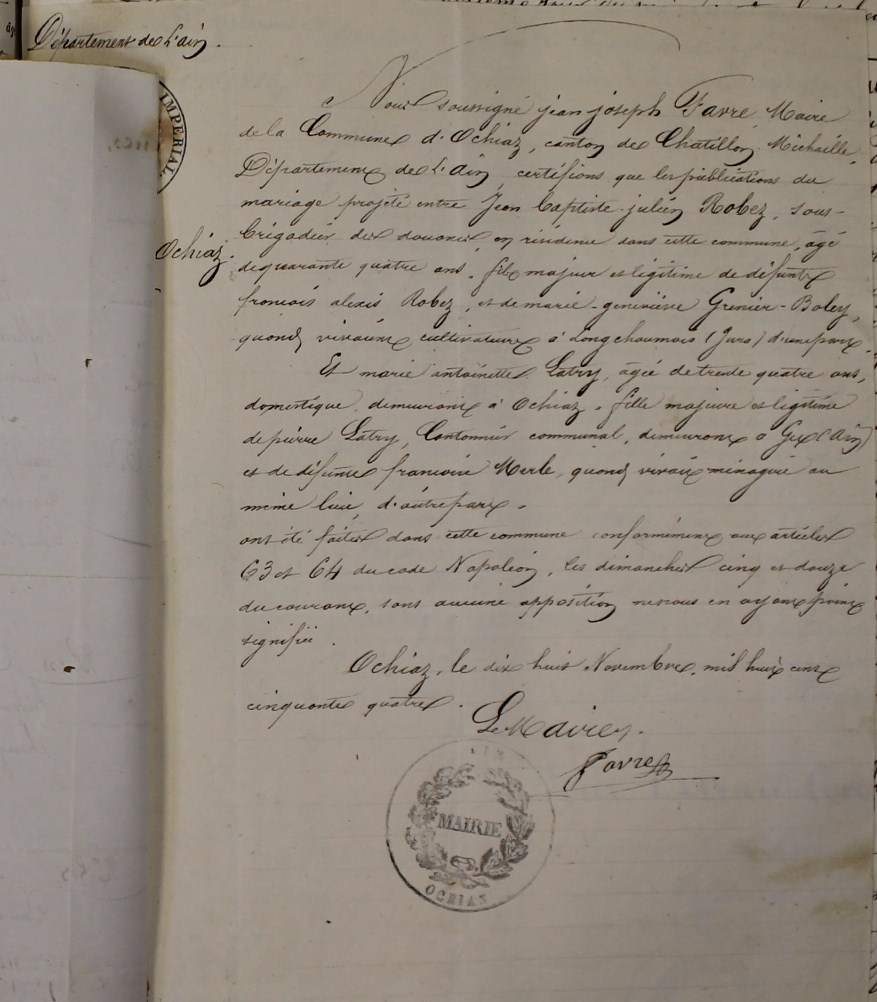 Département de L'ain.
IMPERIAL
Ochiaz.
Nous soussigné jean joseph Favre, Maire
de la Commune d'Ochiaz, canton de Chatillon Michaille,
Département de L'ain, certifions que les publications du
mariage projeté entre Jean Baptiste julien Robez, sous-
brigadier des douanes, en résidence dans cette commune, agé
de quarante quatre ans, fils majeur et légitime de défunts
francois alexis Robez, et de marie-geneviève Grenier-Boley,
quand vivaient cultivateurs à Longchaumois (Jura) d'une part.
Et marie antoinette Latry, agée de trente quatre ans,
domestique, demeurant à Ochiaz, fille majeure et légitime
de pierre Latry, Cantonnier communal, demeurant à Gex (Ain)
et de défunte francoise Merle, quand vivait ménagère au
même lieu, d'autre part.
ont été faites dans cette commune conformément aux articles
63 et 64 du code Napoléon, les dimanches cinq et douze
du courant, sans aucune opposition nous en ayant point
signifié.
Ochiaz, le dix huit Novembre, mil huit cent
cinquante quatre.
Le Maire,
Favre
MAIRIE
OCHIAZ
AIN